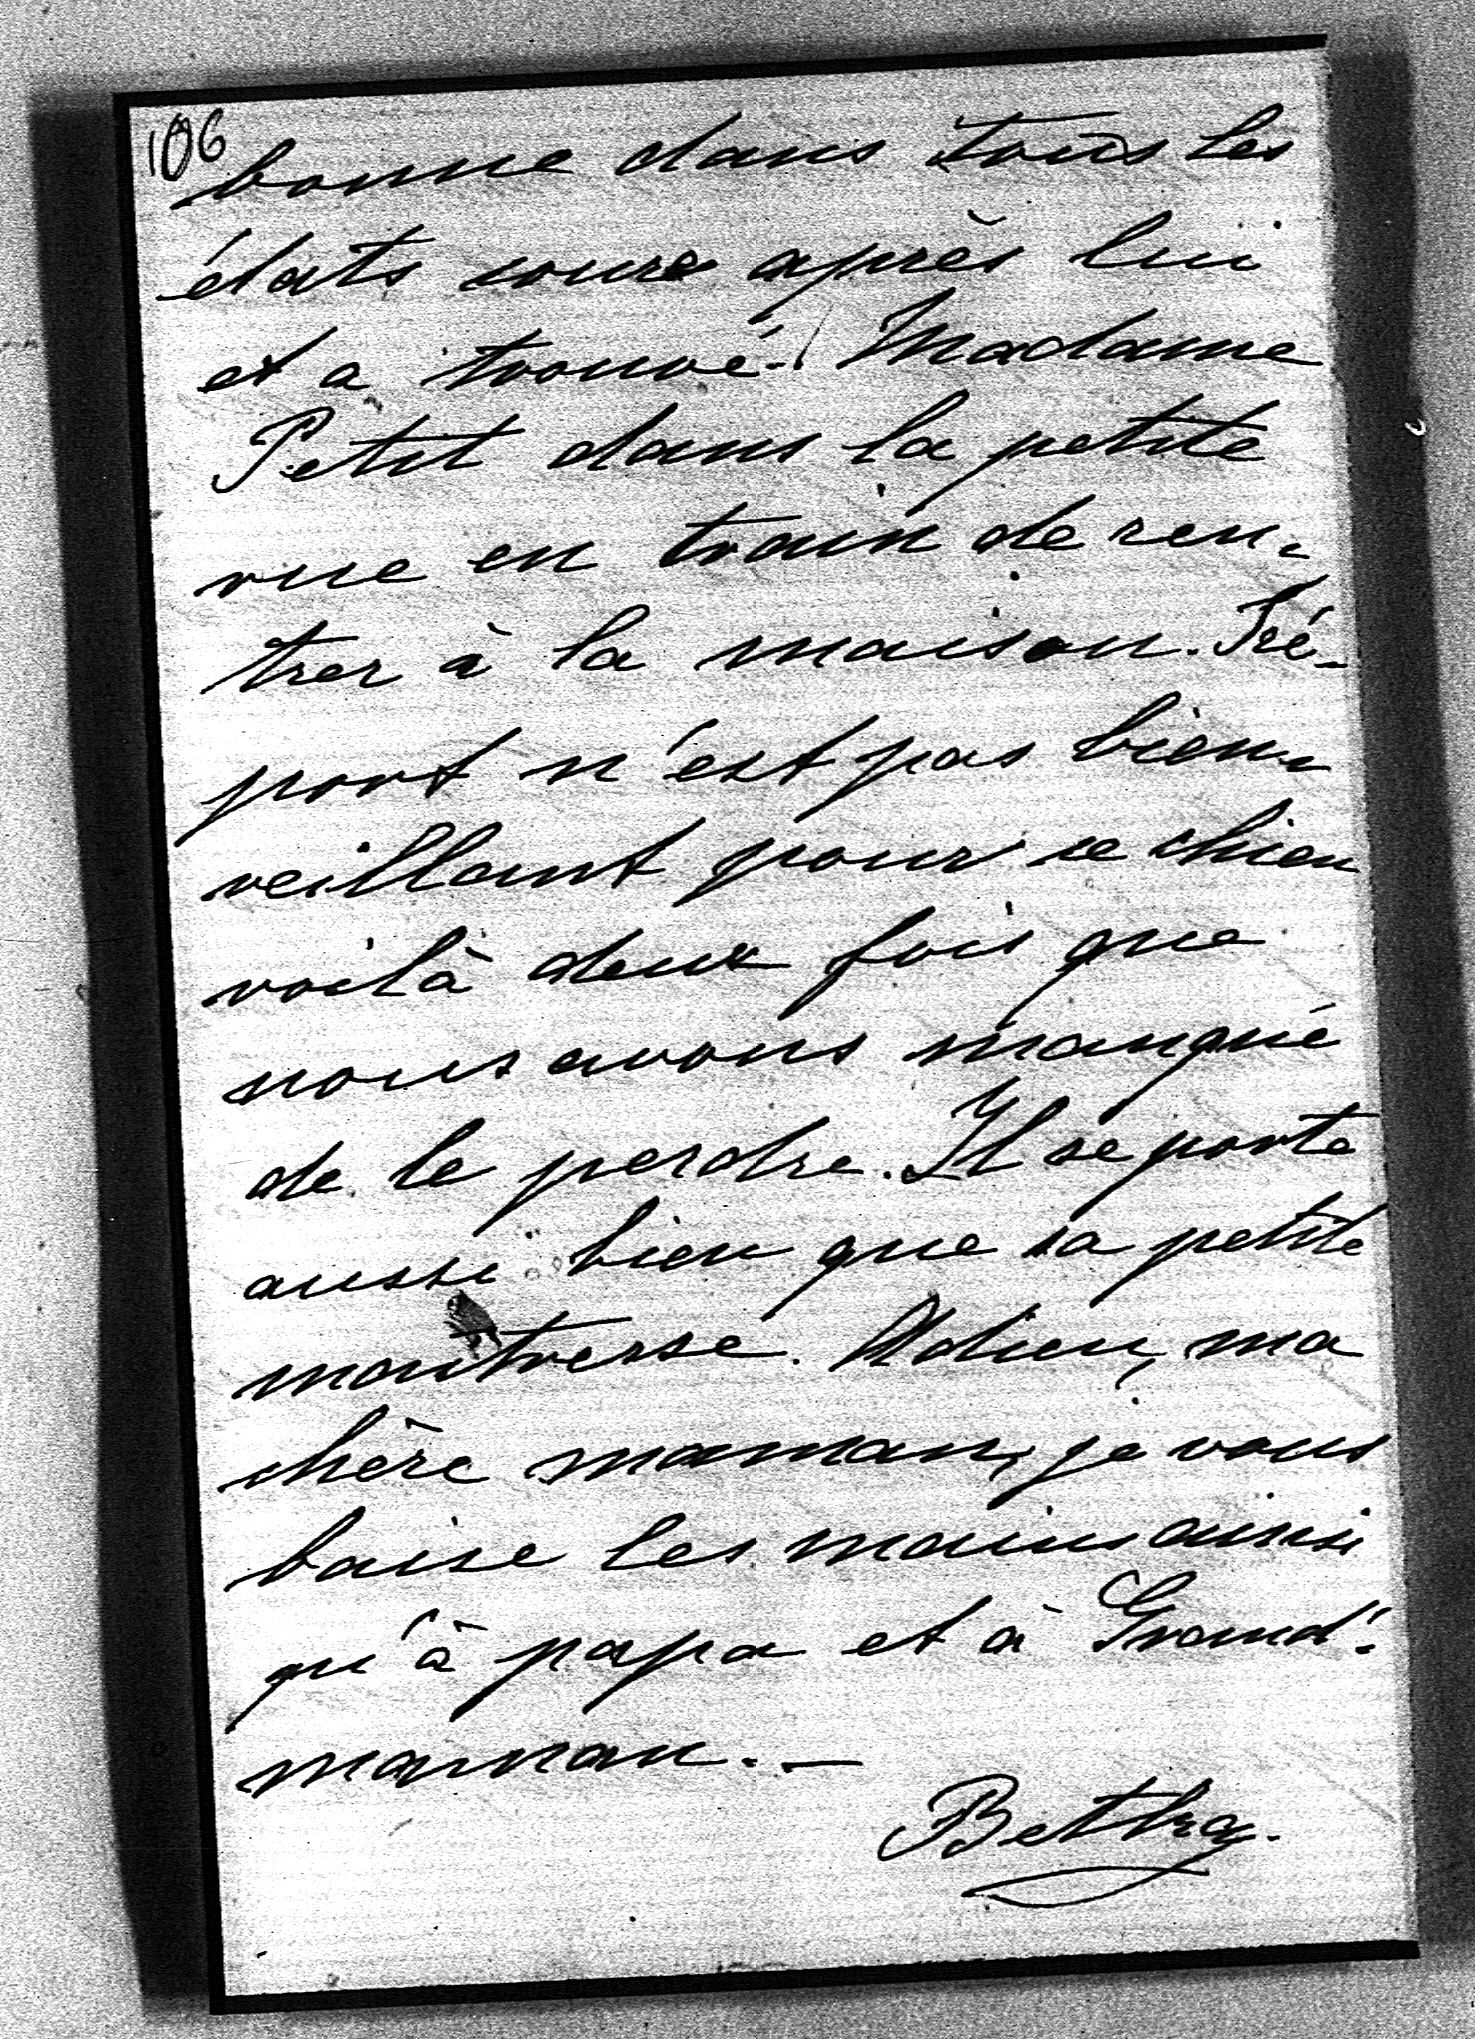 106
bonne dans tous les
états coure après lui
et a trouvé Madame
Petit dans la petite
rue en train de ren-
trer à la maison. Tré-
port n'est pas bien-
veillant pour ce chien
voilà deux fois que
nous avons manqué
de le perdre. Il se porte
aussi bien que sa petite
maitresse. Adieu, ma
chère maman, je vous
baise les mains ainsi
qu'à papa et à Grand'-
maman. —